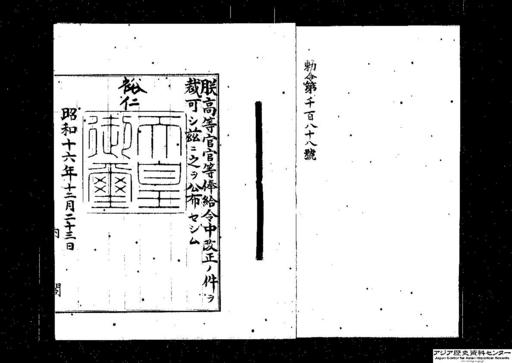 勅令第千百八十八號
朕高等官官等俸給令中改正ノ件ヲ
裁可シ玆ニ之ヲ公布セシム
裕仁
天皇
御璽
昭和十六年十二月二十三日
内閣
アジア歴史資料センター
Japan Center for Asian Historical Records